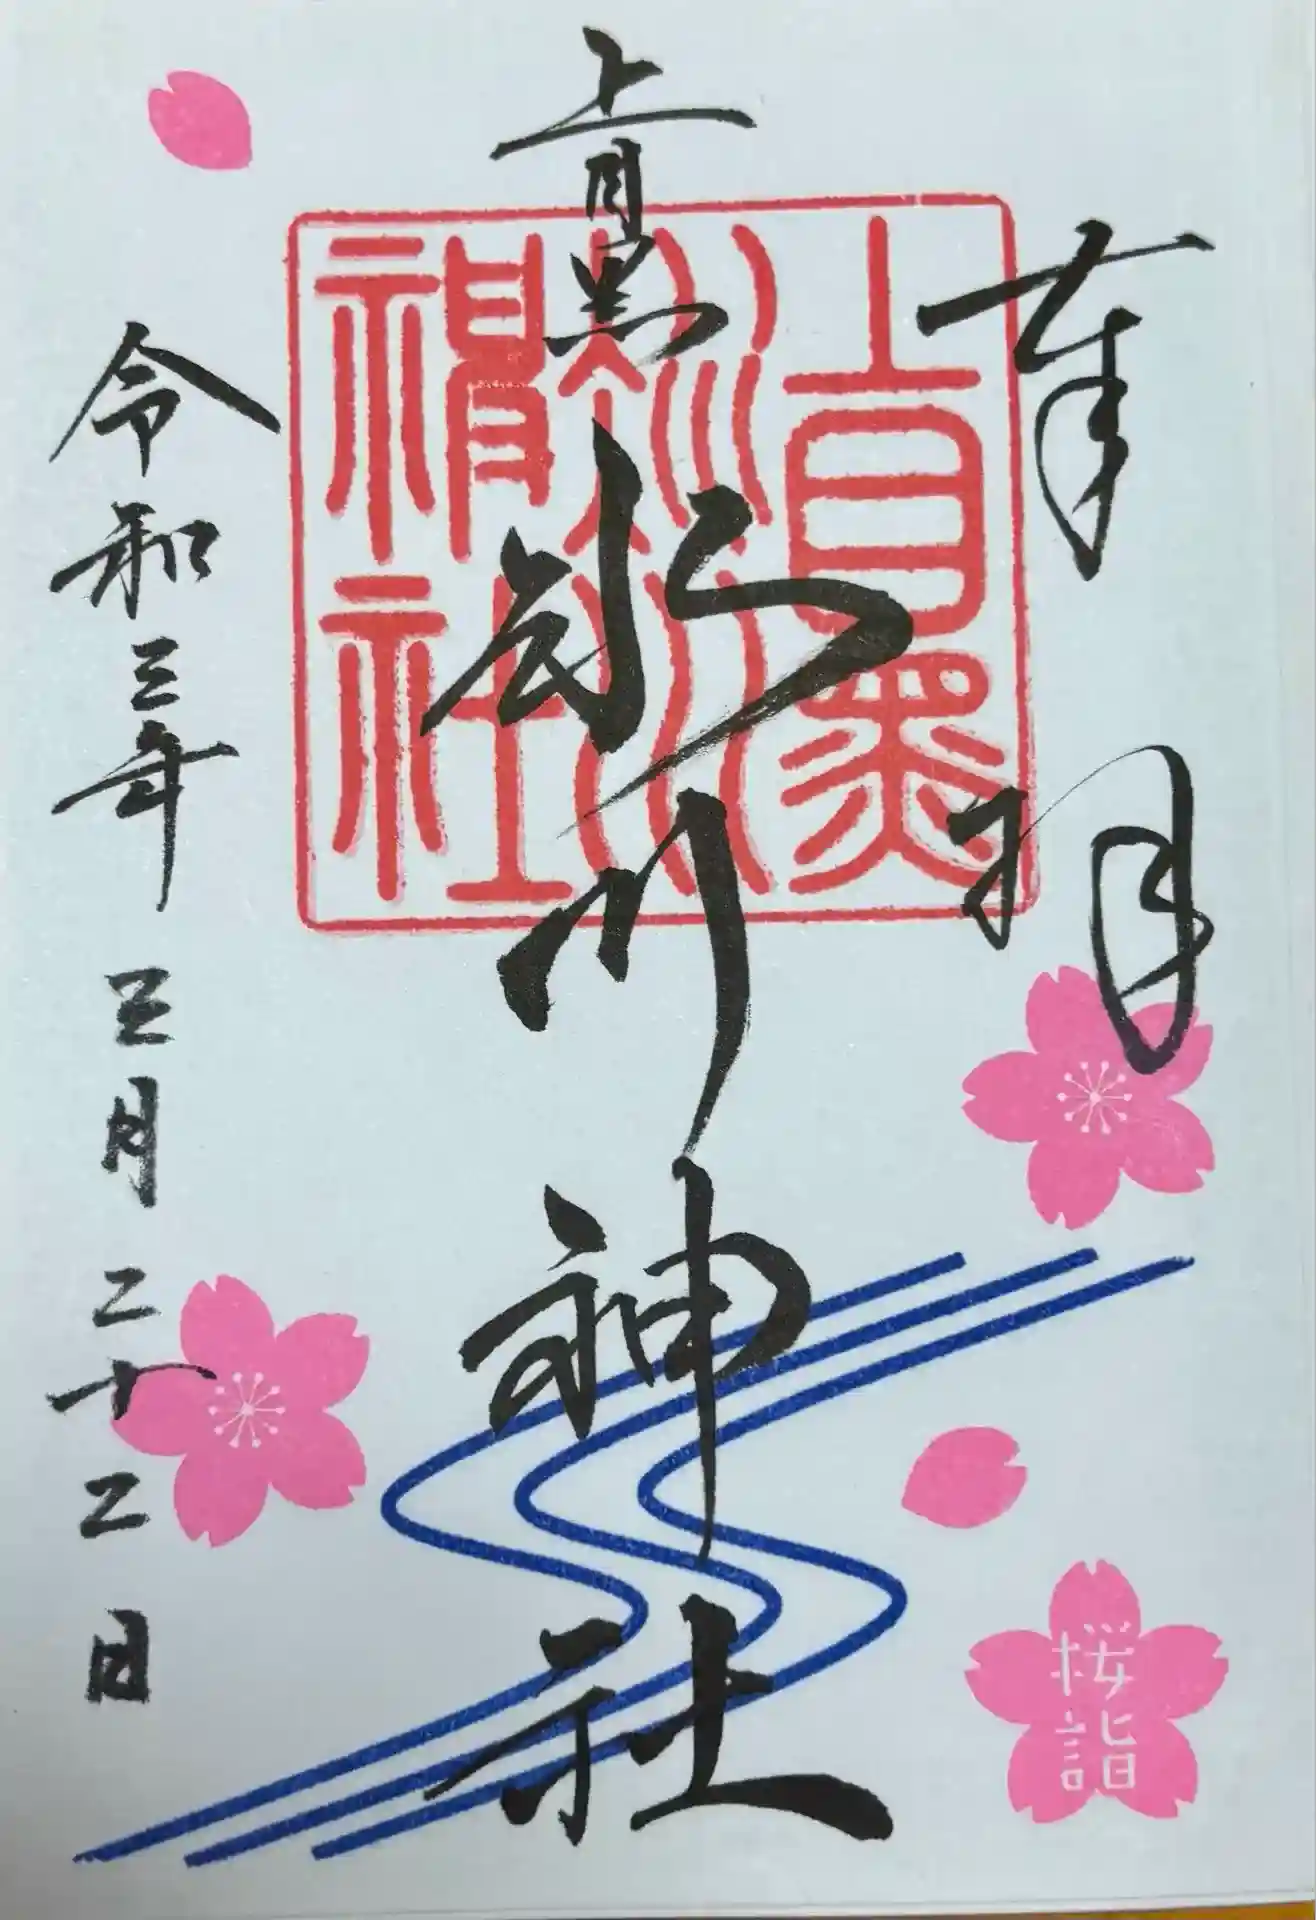 奉拝
上目黒氷川神社
上目黒氷川神社
令和三年三月二十二日
桜詣